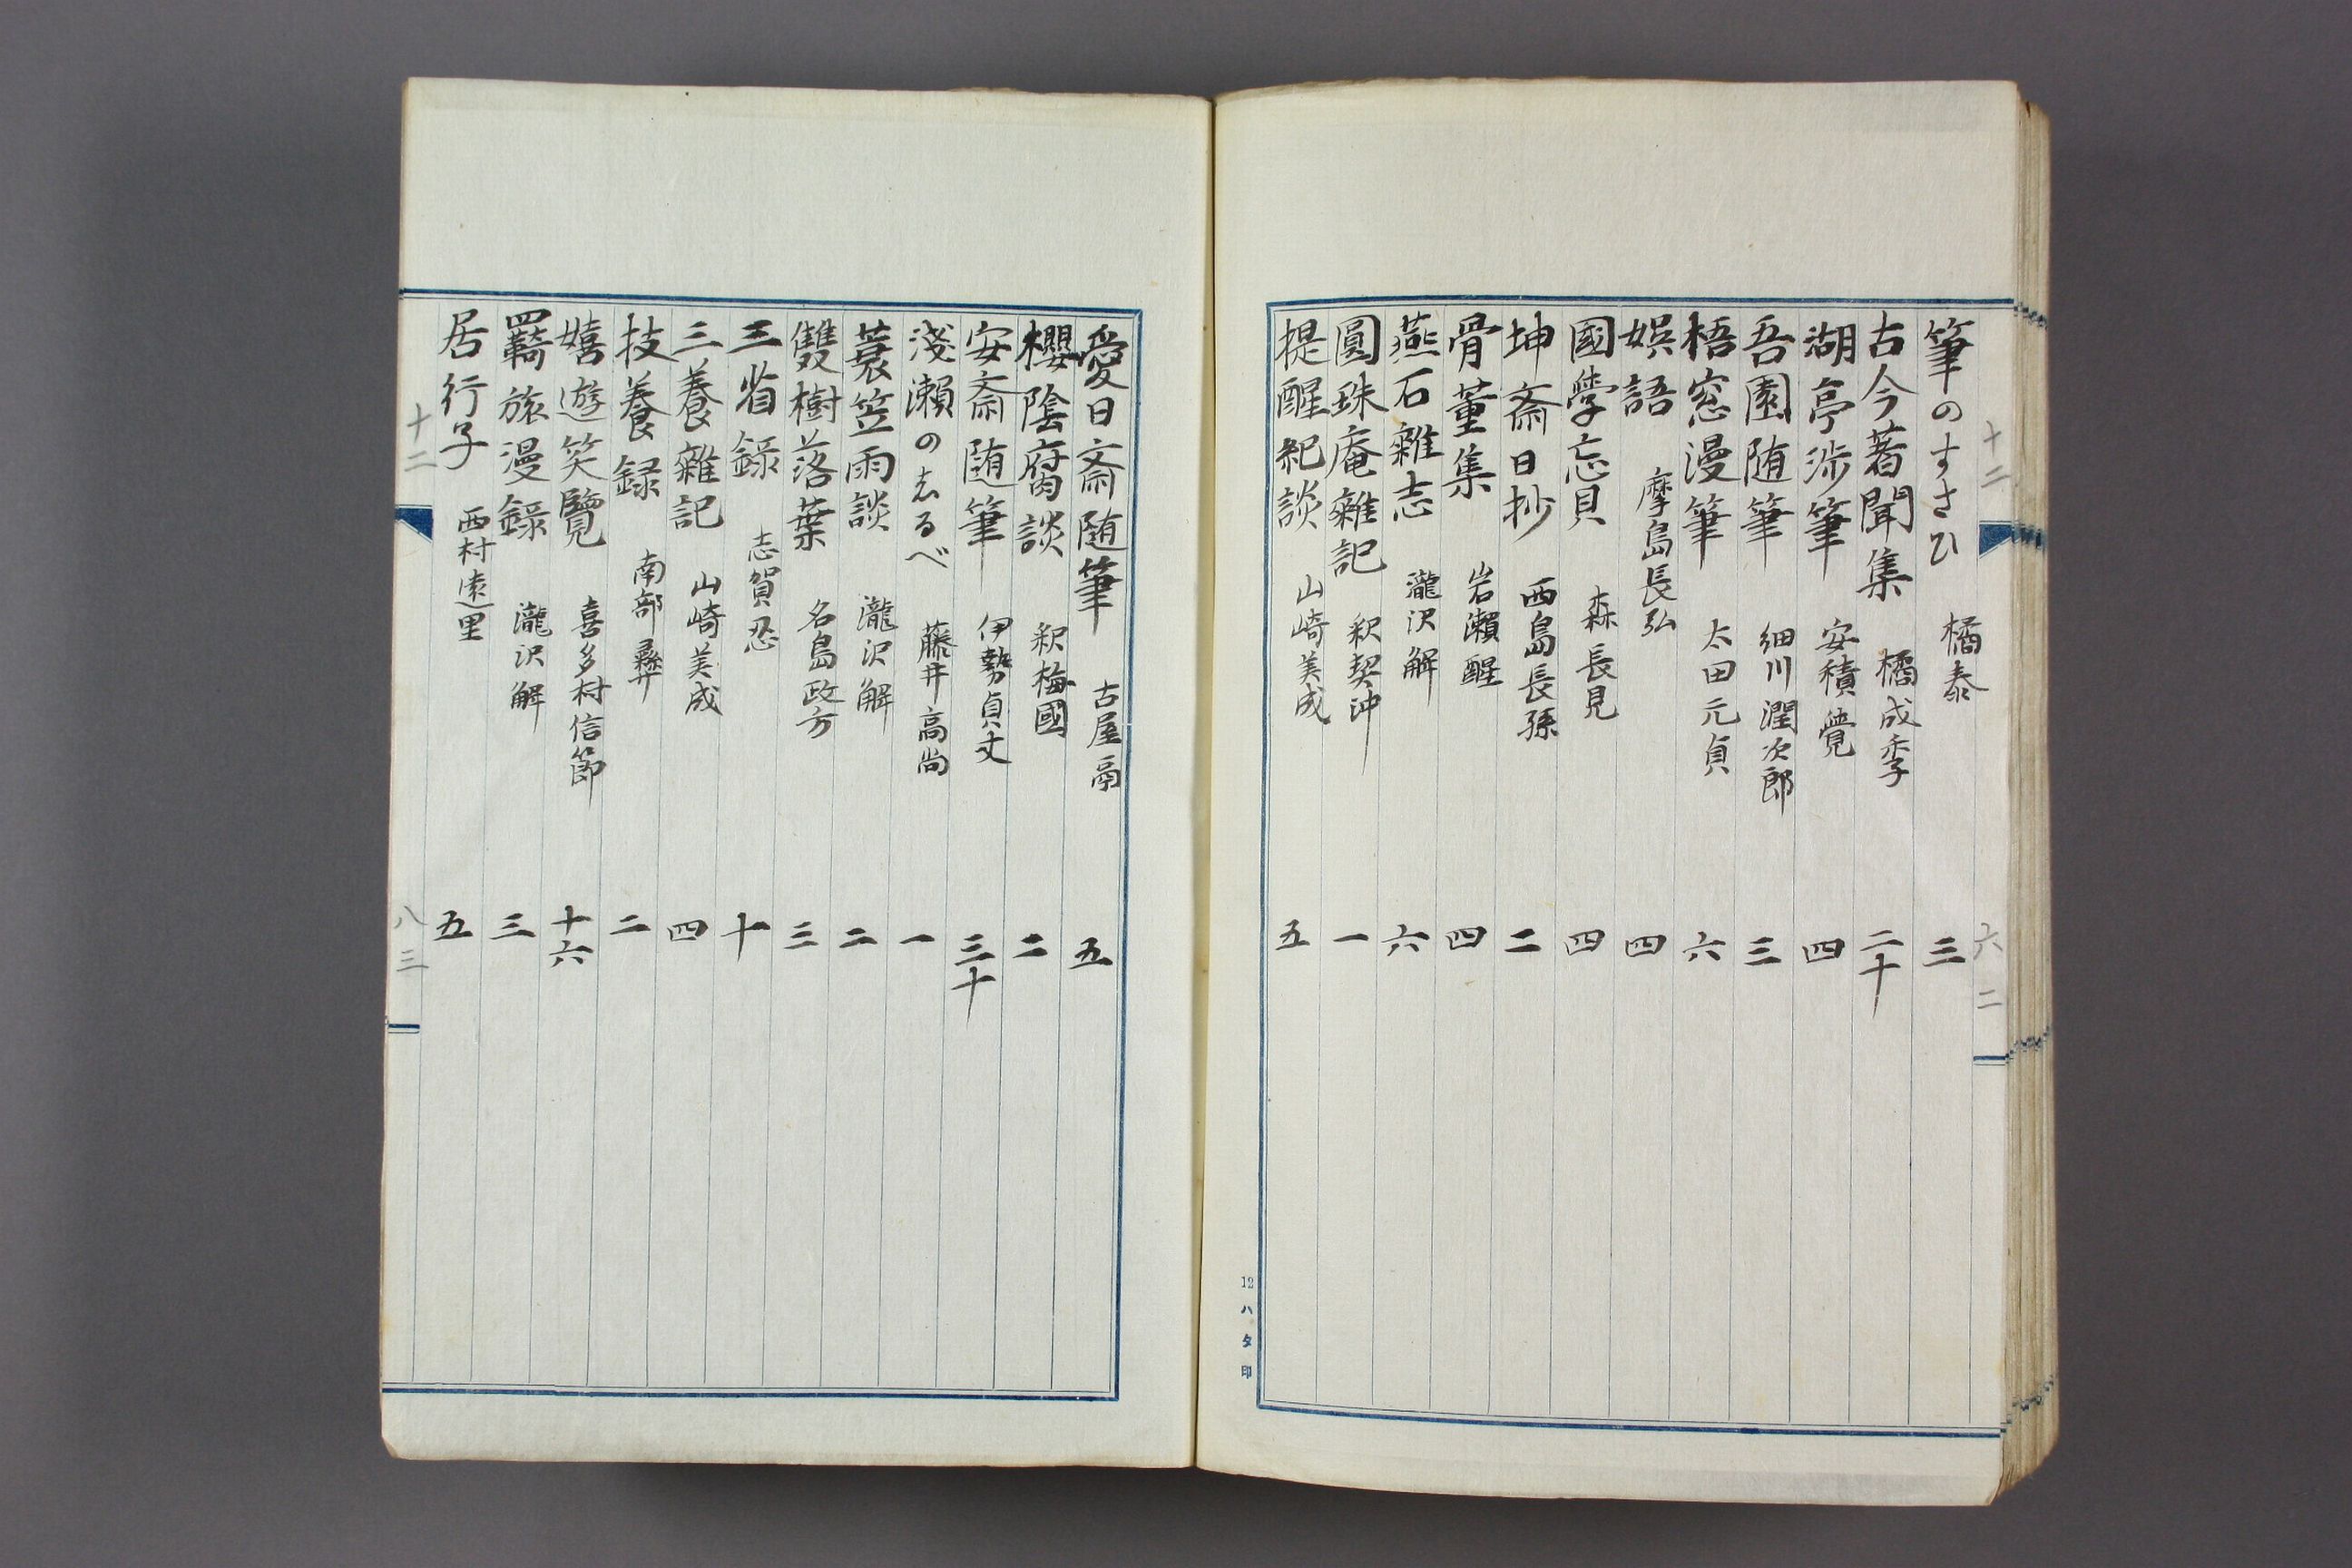 十二 六二
筆のすさひ 橘泰 三
古今著聞集 橘成季 二十
湖亭渉筆 安積覺 四
吾園随筆 細川潤次郎 三
梧窓漫筆 太田元貞 六
娯語 摩島長弘 四
國學忘貝 森長見 四
坤斎日抄 西島長孫 二
骨董集 岩瀬醒 四
燕石雜志 瀧沢解 六
圓珠庵雜記 釈契沖 一
提醒紀談 山崎美成 五
12ハタ印
愛日斎随筆 古屋鬲 五
櫻陰腐談 釈梅國 二
安斎随筆 伊勢貞丈 三十
淺瀬のしるべ 藤井高尚 一
蓑笠雨談 瀧沢解 二
雙樹落葉 名島政方 三
三省録 志賀忍 十
三養雜記 山崎美成 四
技養録 南部彜 二
嬉遊笑覽 喜多村信節 十六
羇旅漫録 瀧沢解 三
居行子 西村遠里 五
十二 八三